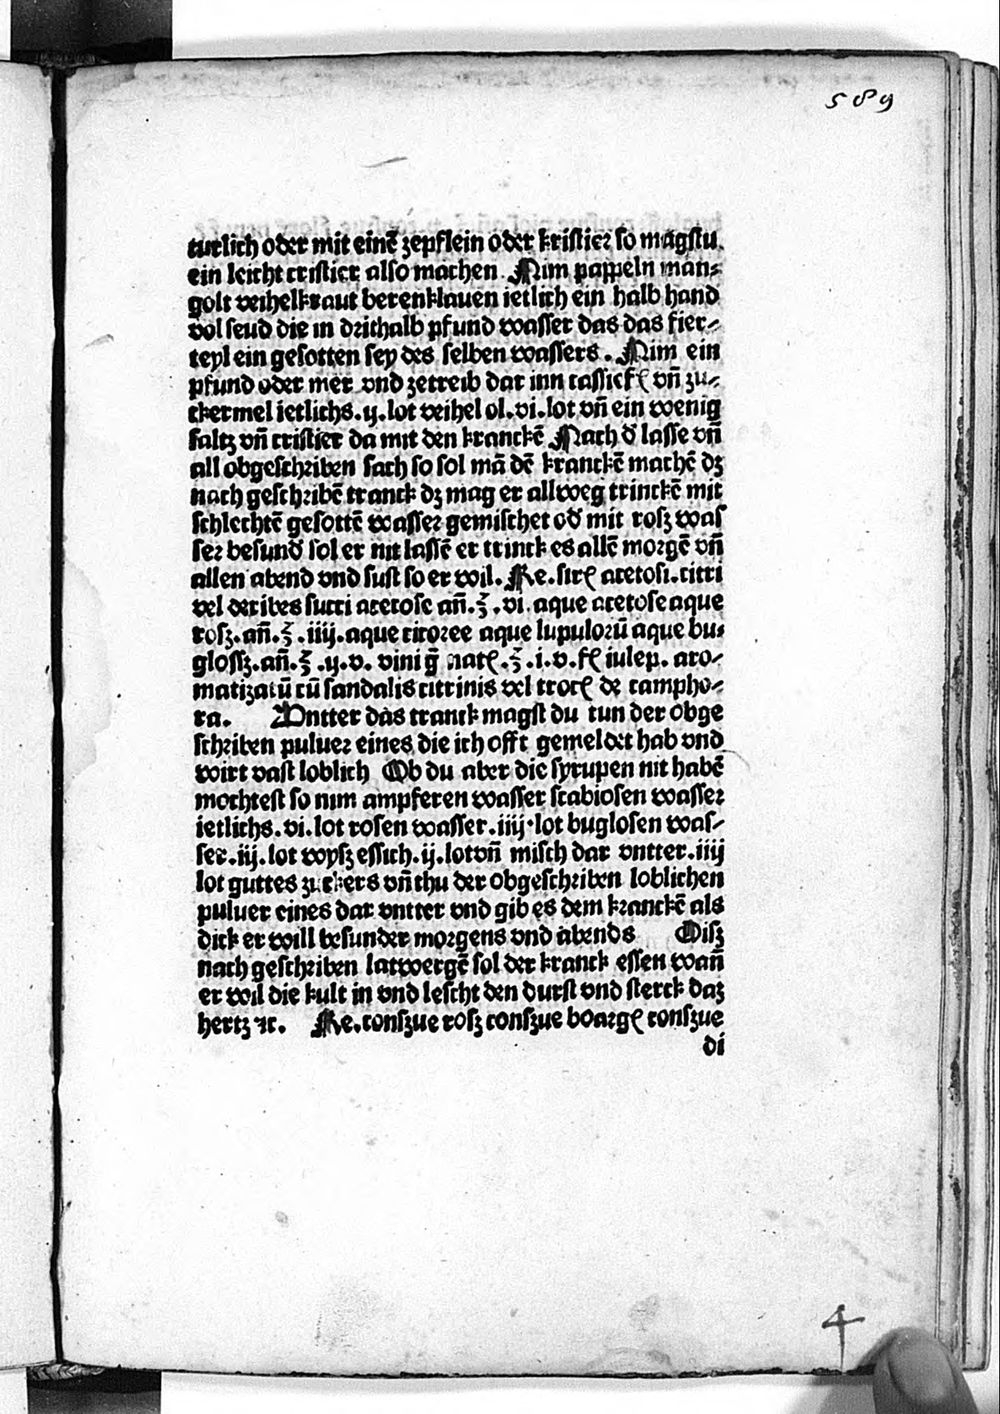 589
turlich oder mit einē zepflein oder kristier so magstu
ein leicht cristier also machen. Nim pappeln man⸗
golt veihelkraut berenklauen ietlich ein halb hand
vol seud die in drithalb pfund wasser das das fier⸗
teyl ein gesotten sey des selben wassers. Nim ein
pfund oder mer vnd zetreib dar inn cassief vñ zu⸗
ckermel ietlichs.ij.lot veihel ol.vi.lot vñ ein wenig
saltz vñ cristier da mit den kranckē Nach d̄ lasse vñ
all obgeschriben sach so sol mā dē kranckē machē dz
nach geschribē tranck dz mag er allweg trinckē mit
schlechtē gesottē wasser gemischet od̄ mit rosz was
ser besund̄ sol er nit lassē er trinck es allē morgē vñ
allen abend vnd sust so er wil. Re. sirꝭ acetosi.citri
vel deribes succi acetose añ.ʒ.vi.aque acetose aque
rosz.añ.ʒ.iiij.aque cicoree aque lupulorū aque bu⸗
glossz.añ.ʒ.ij.v. vini ḡ natꝭ.ʒ.i.v.fꝭ iulep. aro⸗
matizatū cū sandalis citrinis vel trocꝭ de campho⸗
ra. Vntter das tranck magst du tun der obge
schriben puluer eines die ich offt gemeldet hab vnd
wirt vast loblich Ob du aber die syrupen nit habē
mochtest so nim ampferen wasser scabiosen wasser
ietlichs.vi.lot rosen wasser.iiij.lot buglosen was⸗
ser.iij.lot wysz essich.ij.lot vñ misch dar vntter.iiij
lot guttes zuckers vñ thu der obgeschriben loblichen
puluer eines dar vntter vnd gib es dem kranckē als
dick er will besunder morgens vnd abends Disz
nach geschriben latwergē sol der kranck essen wañ
er wil die kult in vnd lescht den durst vnd sterck daz
hertz ⁊c. Re. conszue rosz conszue boargꝭ conszue
di
4